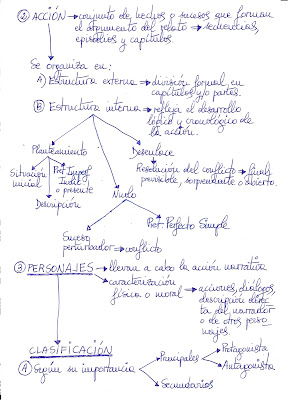 ② ACCIÓN → conjunto de hechos o sucesos que forman
el argumento del relato → secuencias,
episodios y capítulos.
Se organiza en:
A) Estructura externa → división formal, en
capítulos y/o partes.
B) Estructura interna → refleja el desarrollo
lógico y cronológico de
la acción.
Planteamiento
Desenlace
Situación
inicial
Pret. Imperf.
Indic.
o presente
Descripción
Resolución del conflicto → final
previsible, sorprendente o abierto.
Nudo
Pret. Perfecto Simple
Suceso
perturbador → conflicto
③ PERSONAJES → llevan a cabo la acción narrativa
caracterización
física o moral → acciones, diálogos,
descripción direc-
ta del narrador
o de otros perso-
najes.
CLASIFICACIÓN
A) Según su importancia
Principales
Protagonista
Antagonista
Secundarios